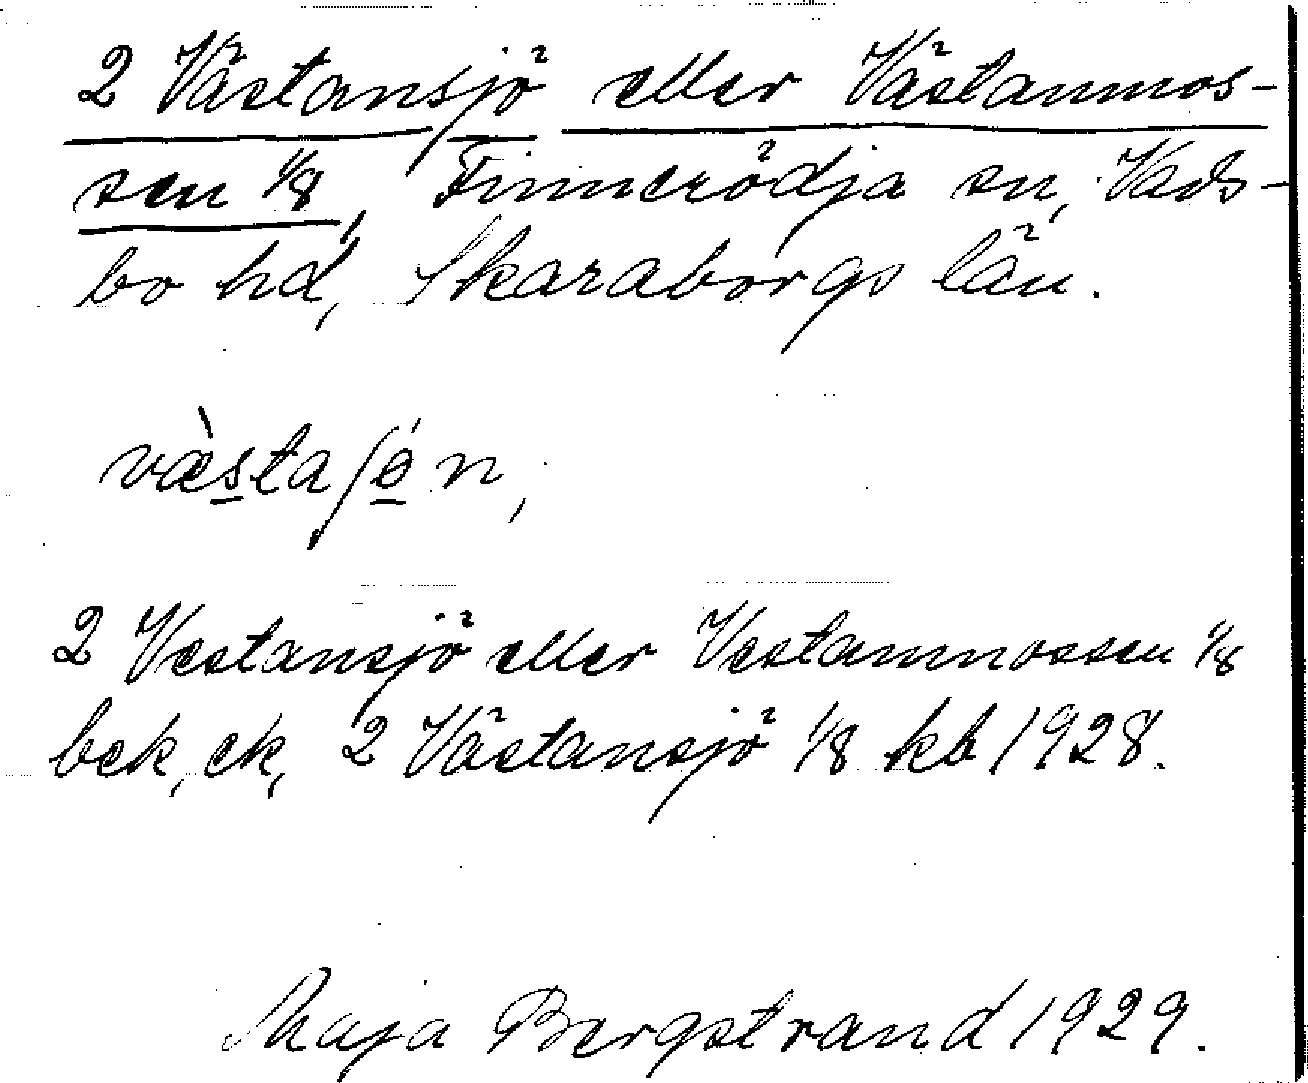 2 Västansjö eller Västanmos-
sen 1/8, Finnerödja sn, Vads-
bo hd, Skaraborgs län.
væ̀staʃɵ́n,
2 Vestansjö eller Vestanmossen 1/8
bek, ek, 2 Västansjö 1/8 kb 1928.
Maja Bergstrand 1929.